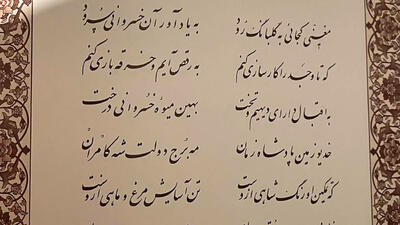 مغنی کجائی به گلبانگ رود به یاد آور آن خسروانی سرود
که تا وجد را کارسازی کنم به رقص آیم و خرقه بازی کنم
به اقبال دارای دیهیم و تخت بهین میوهٔ خسروانی درخت
خدیو زمین پادشاه زمان مه برج دولت شه کامران
که تمکین اورنگ شاهی ازوست تن آسایش مرغ و ماهی ازوست